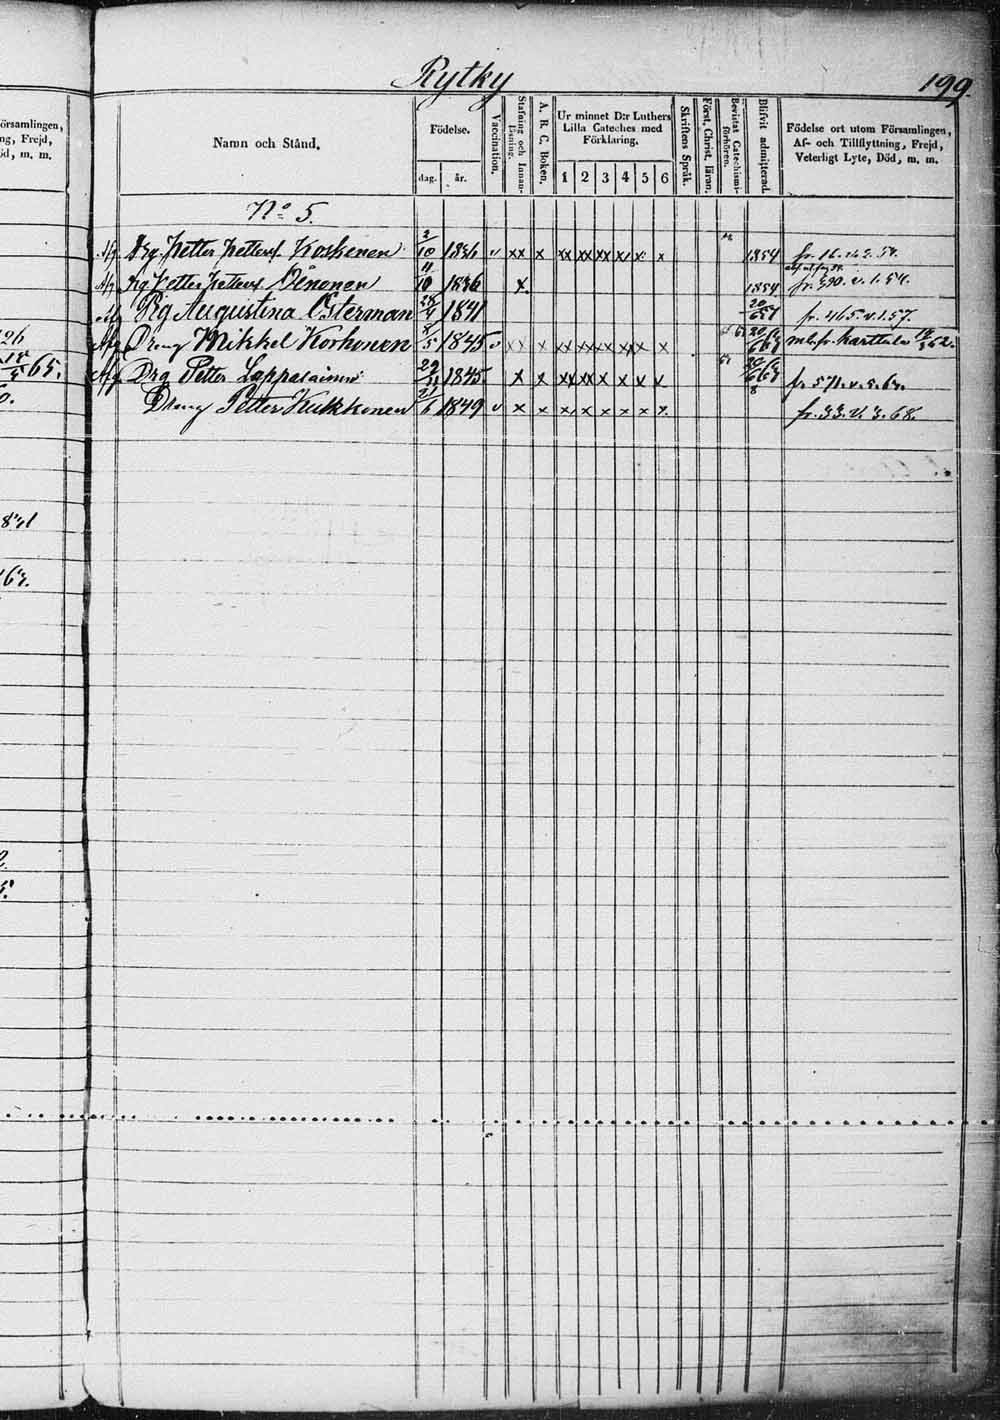 Rytky
199.
örsamlingen,
ng, Frejd,
öd, m. m.
Namn och Stånd.
Födelse.
dag. år.
Vaccination.
Stafning och Innan-
läsning.
A. B. C. Boken.
Ur minnet D:r Luthers
Lilla Cateches med
Förklaring.
1 2 3 4 5 6
Skriftens Språk.
Först. Christ. läran.
Bevistat Catechismi-
förhören.
Blifvit admitterad.
Födelse ort utom Församlingen,
Af- och Tillflyttning, Frejd,
Veterligt Lyte, Död, m. m.
No 5.
Afg Drg Petter Petterss. Koskenen 2/10 1836 v xx x xx xx xx x x x x 1854 fr. 16. v. 2. 54.
Afg Drg Petter Petterss. 11/10 1836 x. 1854 fr. 390. v. 1. 54.
Pig Augustina Österman 28/4 1841 fr. 465. v. 1. 57.
Afg Dreng Mikkel Korhonen 8/5 1845 v xx x xx xx xx xx x x fr. Karttula
Afg Drg Petter Lappalainen 1845. x x xx xx x x x x fr 571. v. 5. 6
Dreng Petter Kukkonen 2/6 1849 v x x x x x x x x. fr. 33. v. 3. 68.
126
65.
0.
63.